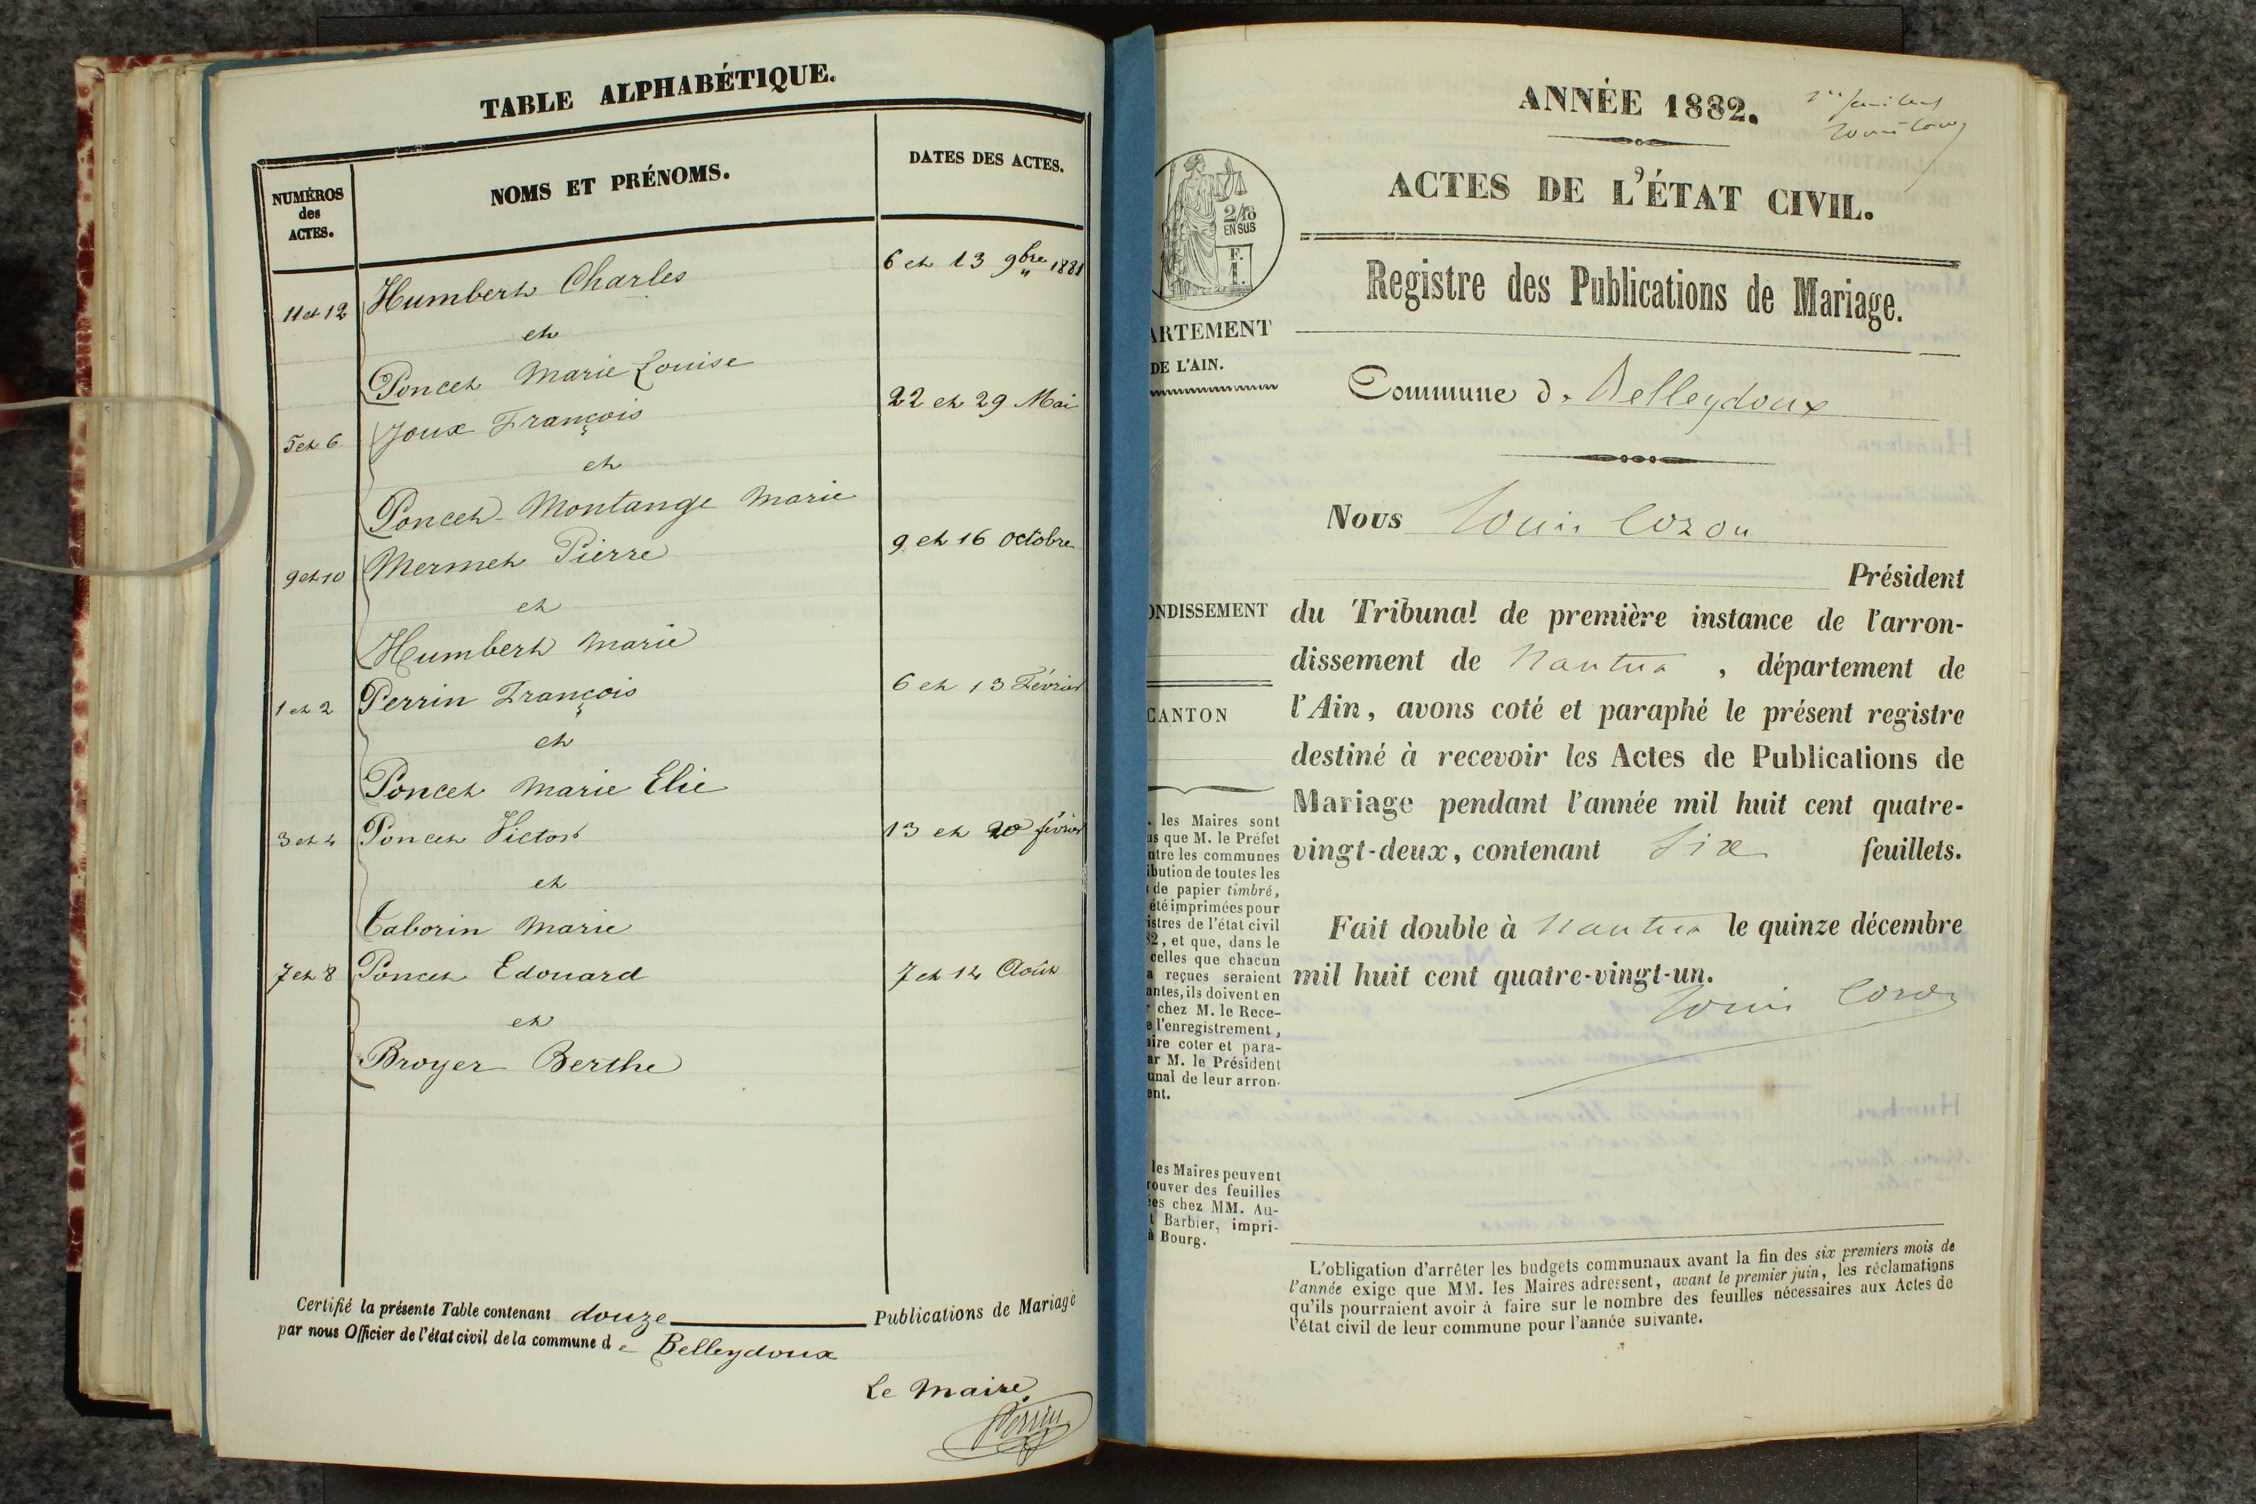 TABLE ALPHABÉTIQUE.
NUMÉROS
des
ACTES.
NOMS ET PRÉNOMS.
DATES DES ACTES.
11 et 12 Humbert Charles 6 et 13 9bre 1881
et
Poncet Marie Louise
5 et 6 Joux François 22 et 29 Mai
et
Poncet-Montange Marie
9 et 10 Mermet Pierre 9 et 16 Octobre
et
Humbert Marie
1 et 2 Perrin François 6 et 13 Février
et
Poncet Marie Elie
3 et 4 Poncet Victor 13 et 20 février
et
Taborin Marie
7 et 8 Poncet Edouard 7 et 14 Août
et
Broyer Berthe
Certifié la présente Table contenant douze Publications de Mariage
par nous Officier de l'état civil de la commune de Belleydoux
Le Maire
Perrin
ANNÉE 1882.
ACTES DE L'ÉTAT CIVIL.
2/10
EN SUS
F.
1.
Registre des Publications de Mariage.
ARTEMENT
DE L'AIN.
Commune d. Belleydoux
Nous Louis Cozon
Président
ONDISSEMENT
du Tribunal de première instance de l'arron-
dissement de Nantua, département de
CANTON
l'Ain, avons coté et paraphé le présent registre
destiné à recevoir les Actes de Publications de
Mariage pendant l'année mil huit cent quatre-
vingt-deux, contenant Six feuillets.
Fait double à Nantua le quinze décembre
mil huit cent quatre-vingt-un.
Louis Cozon
. les Maires sont
us que M. le Préfet
ntre les communes
ibution de toutes les
de papier timbré,
été imprimées pour
istres de l'état civil
82, et que, dans le
celles que chacun
a reçues seraient
antes, ils doivent en
r chez M. le Rece-
e l'enregistrement,
aire coter et para-
ar M. le Président
unal de leur arron-
ent.
les Maires peuvent
rouver des feuilles
ées chez MM. Au-
t Barbier, impri-
à Bourg.
L'obligation d'arrêter les budgets communaux avant la fin des six premiers mois de
l'année exige que MM. les Maires adressent, avant le premier juin, les réclamations
qu'ils pourraient avoir à faire sur le nombre des feuilles nécessaires aux Actes de
l'état civil de leur commune pour l'année suivante.